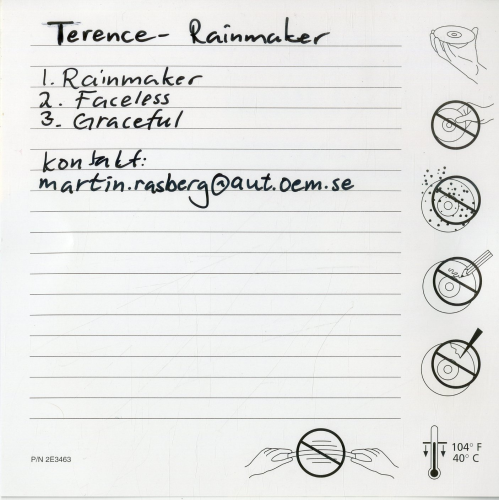 Terence - Rainmaker
1. Rainmaker
2. Faceless
3. Graceful
kontakt:
martin.rasberg@aut.oem.se
104° F
40° C
P/N 2E3463